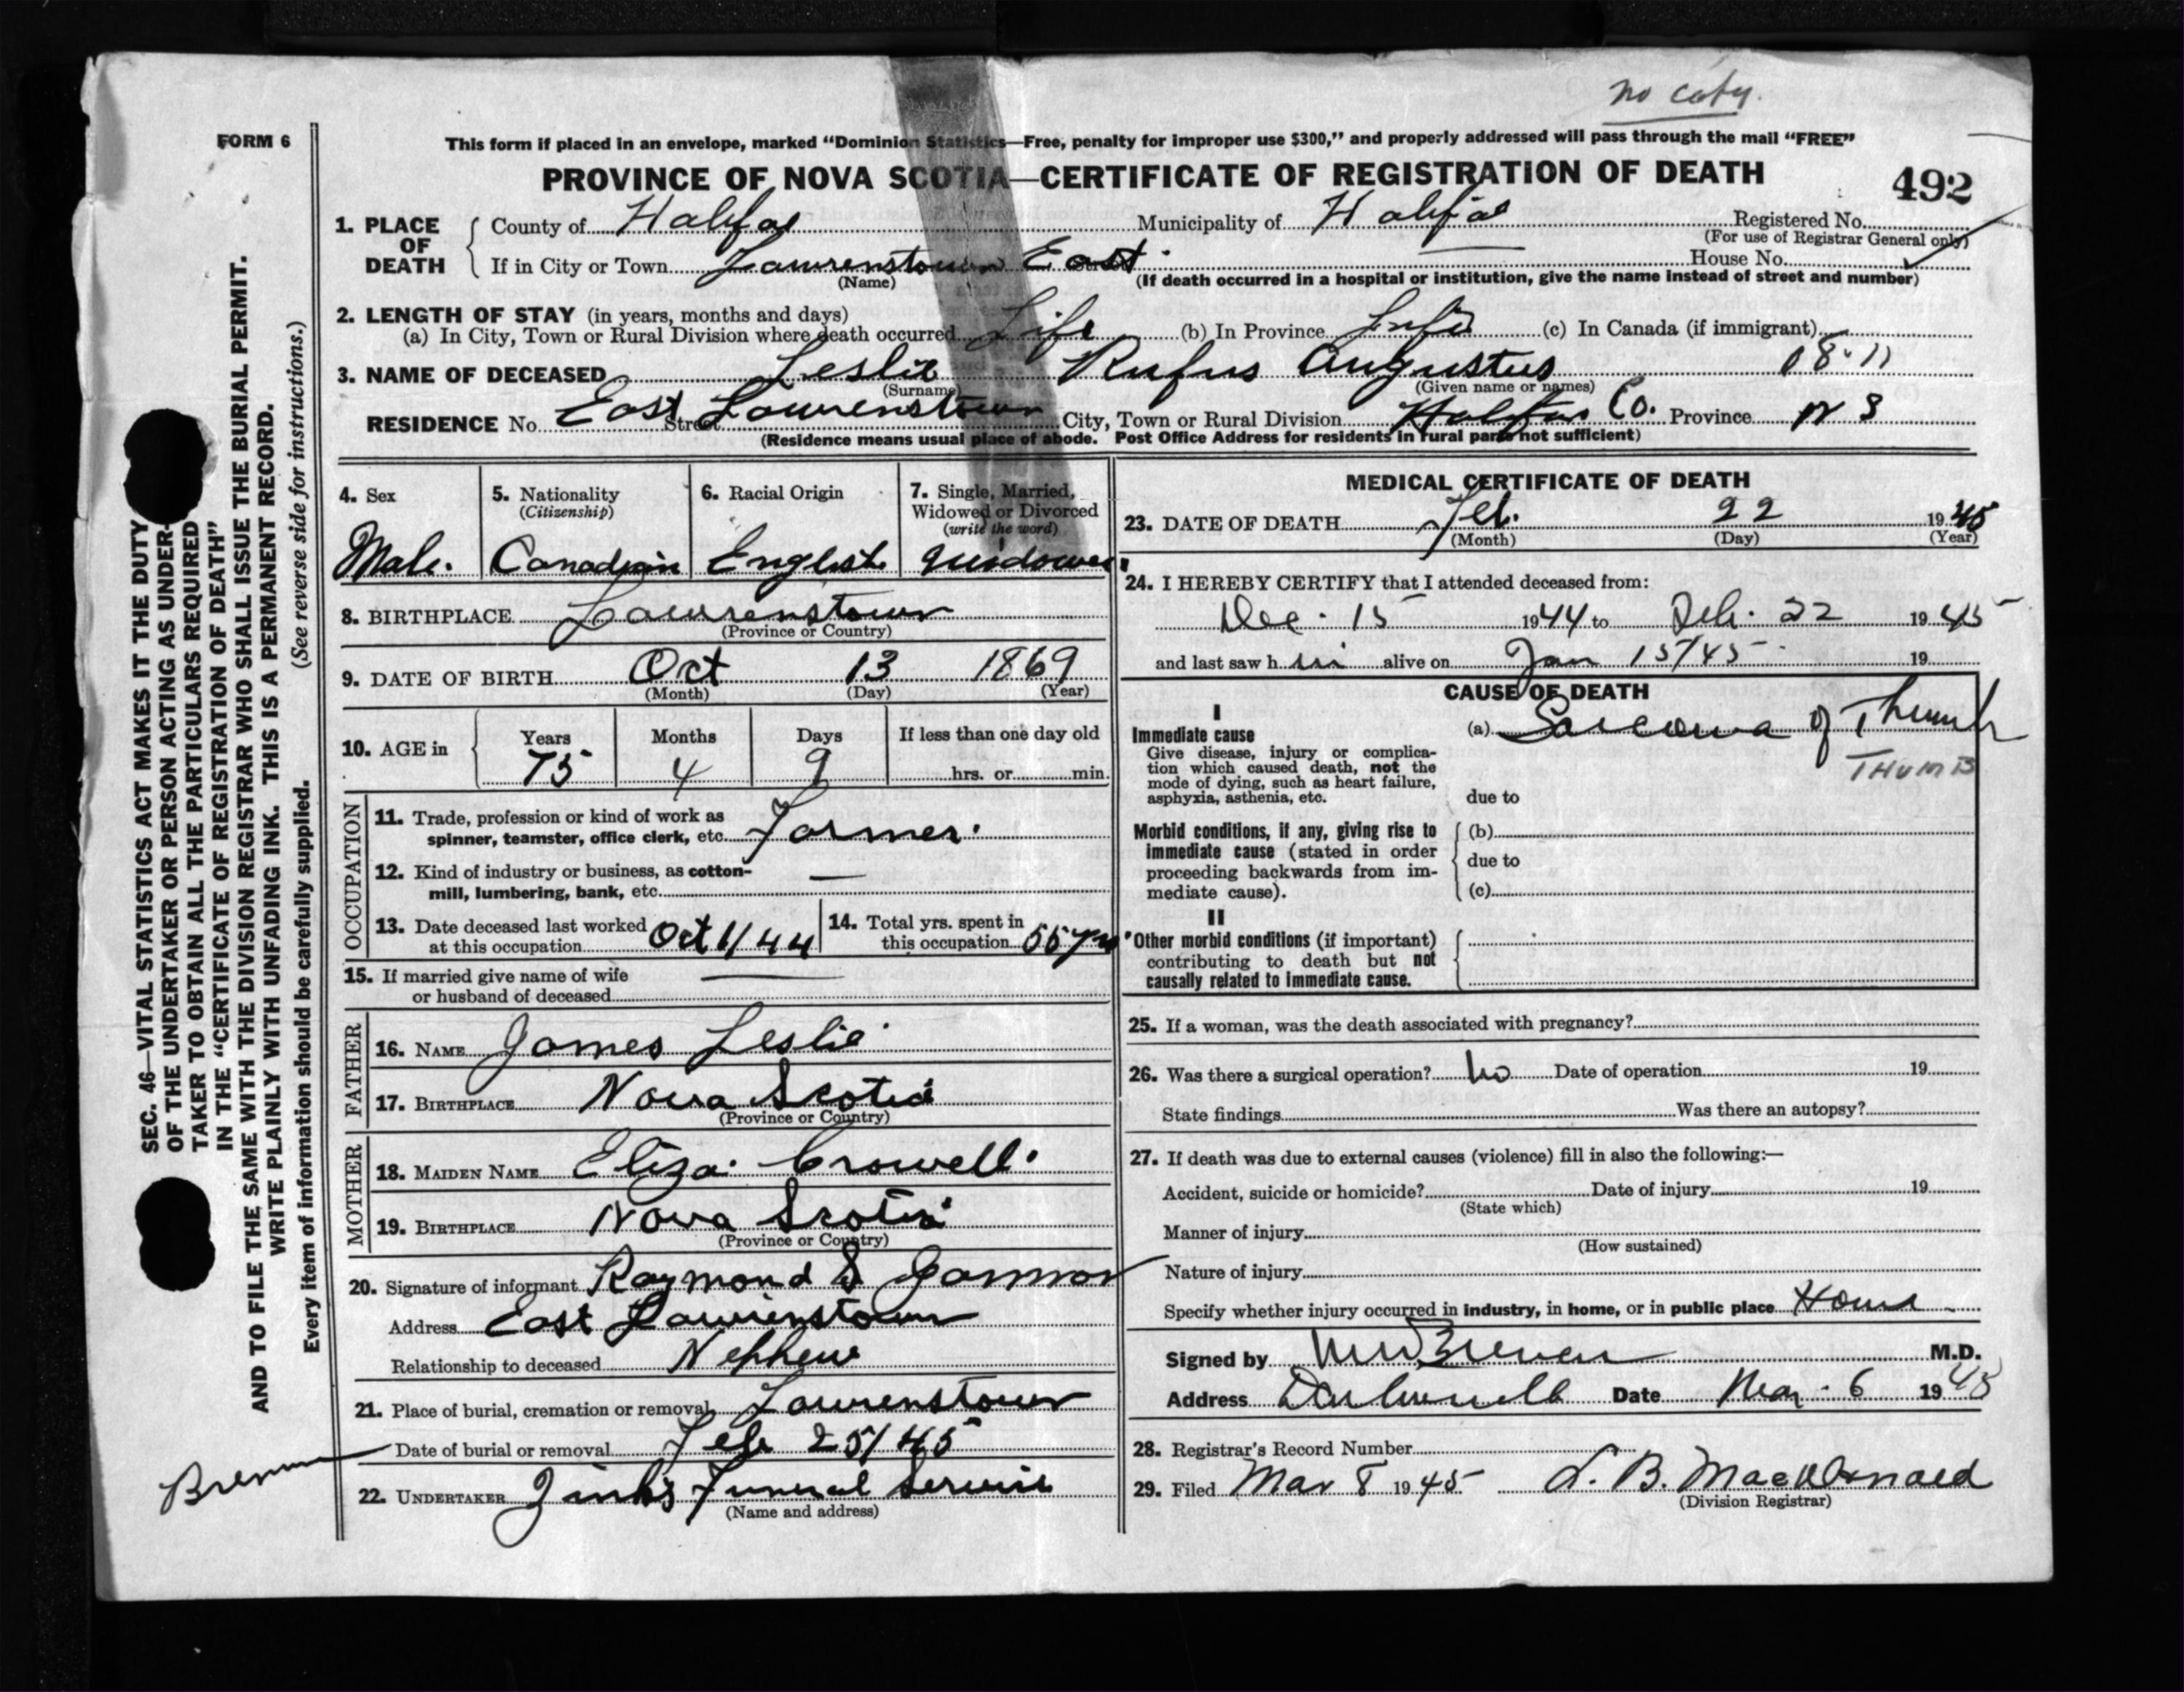 no copy.
FORM 6
This form if placed in an envelope, marked “Dominion Statistics—Free, penalty for improper use $300,” and properly addressed will pass through the mail “FREE”
PROVINCE OF NOVA SCOTIA—CERTIFICATE OF REGISTRATION OF DEATH
492
1. PLACE OF DEATH
County of Halifax Municipality of Halifax Registered No.
(For use of Registrar General only)
If in City or Town Lawrenstown East Street House No.
(Name) (If death occurred in a hospital or institution, give the name instead of street and number)
2. LENGTH OF STAY (in years, months and days)
(a) In City, Town or Rural Division where death occurred Life (b) In Province Life (c) In Canada (if immigrant)
3. NAME OF DECEASED Leslie Rufus Augustus 18-11
(Surname) (Given name or names)
RESIDENCE No. East Lawrenstown Street City, Town or Rural Division Halifax Co. Province N S
(Residence means usual place of abode. Post Office Address for residents in rural parts not sufficient)
4. Sex
Male.
5. Nationality
(Citizenship)
Canadian
6. Racial Origin
English
7. Single, Married,
Widowed or Divorced
(write the word)
Widower
8. BIRTHPLACE Lawrenstown
(Province or Country)
9. DATE OF BIRTH Oct 13 1869
(Month) (Day) (Year)
10. AGE in
Years Months Days If less than one day old
75 4 9 hrs. or min.
OCCUPATION
11. Trade, profession or kind of work as
spinner, teamster, office clerk, etc. Farmer.
12. Kind of industry or business, as cotton-
mill, lumbering, bank, etc. —
13. Date deceased last worked
at this occupation Oct 1/44
14. Total yrs. spent in
this occupation 55 yrs
15. If married give name of wife
or husband of deceased —
FATHER
16. NAME James Leslie
17. BIRTHPLACE Nova Scotia
(Province or Country)
MOTHER
18. MAIDEN NAME Eliza Crowell.
19. BIRTHPLACE Nova Scotia
(Province or Country)
20. Signature of informant Raymond S
Address East Lawrenstown
Relationship to deceased Nephew
21. Place of burial, cremation or removal Lawrenstown
Date of burial or removal Feb 25/45
22. UNDERTAKER Zink's Funeral Service
(Name and address)
MEDICAL CERTIFICATE OF DEATH
23. DATE OF DEATH Feb. 22 1945
(Month) (Day) (Year)
24. I HEREBY CERTIFY that I attended deceased from:
Dec. 15 1944 to Feb. 22 1945
and last saw h im alive on Jan 15/45 19
CAUSE OF DEATH
I
Immediate cause
Give disease, injury or complica-
tion which caused death, not the
mode of dying, such as heart failure,
asphyxia, asthenia, etc.
(a) Sarcoma of Thumb
THUMB
due to
Morbid conditions, if any, giving rise to
immediate cause (stated in order
proceeding backwards from im-
mediate cause).
(b)
due to
(c)
II
Other morbid conditions (if important)
contributing to death but not
causally related to immediate cause.
25. If a woman, was the death associated with pregnancy?
26. Was there a surgical operation? no Date of operation 19
State findings Was there an autopsy?
27. If death was due to external causes (violence) fill in also the following:—
Accident, suicide or homicide? Date of injury 19
(State which)
Manner of injury
(How sustained)
Nature of injury
Specify whether injury occurred in industry, in home, or in public place Home
Signed by M.D.
Address Date Mar. 6 1945
28. Registrar's Record Number
29. Filed Mar 8 1945 L. B. MacDonald
(Division Registrar)
SEC. 46—VITAL STATISTICS ACT MAKES IT THE DUTY
OF THE UNDERTAKER OR PERSON ACTING AS UNDER-
TAKER TO OBTAIN ALL THE PARTICULARS REQUIRED
IN THE “CERTIFICATE OF REGISTRATION OF DEATH”
AND TO FILE THE SAME WITH THE DIVISION REGISTRAR WHO SHALL ISSUE THE BURIAL PERMIT.
WRITE PLAINLY WITH UNFADING INK. THIS IS A PERMANENT RECORD.
Every item of information should be carefully supplied. (See reverse side for instructions.)